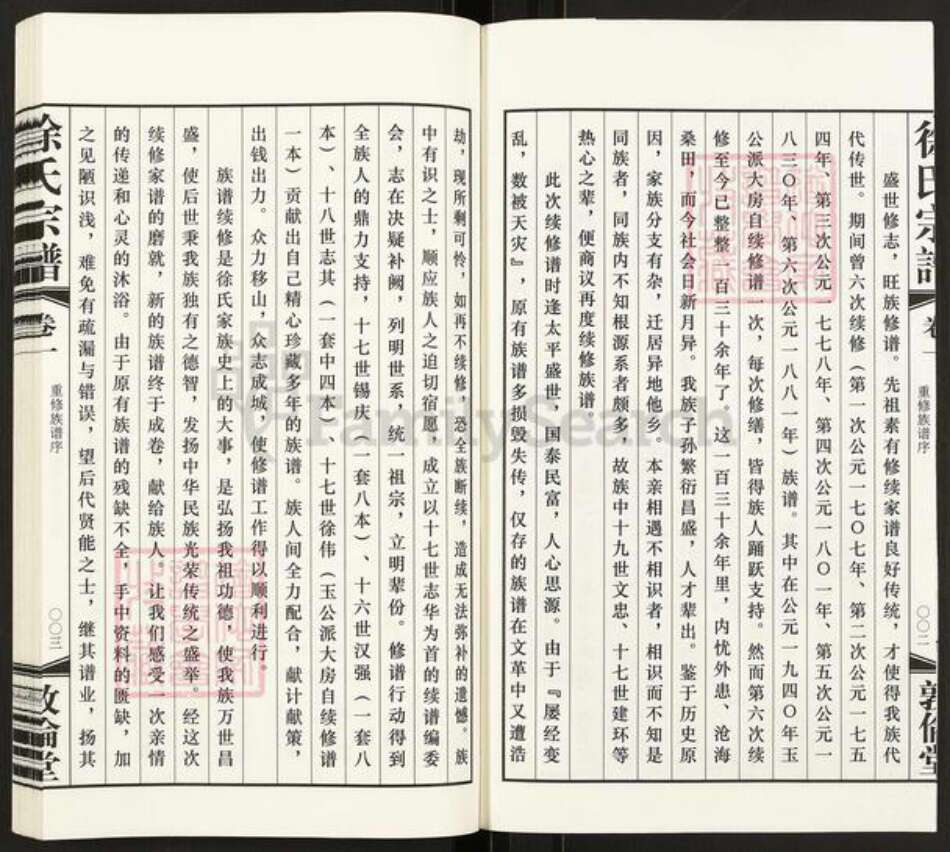 徐氏宗谱
卷一
重修族谱序
〇〇二
敦伦堂
盛世修志，旺族修谱。先祖素有修续家谱良好传统，才使得我族代
代传世。期间曾六次续修（第一次公元一七〇七年、第二次公元一七五
四年、第三次公元一七七八年、第四次公元一八〇一年、第五次公元一
八三〇年、第六次公元一八八一年）族谱。其中在公元一九四〇年玉
公派大房自续修谱一次，每次修缮，皆得族人踊跃支持。然而第六次续
修至今已整整一百三十余年了，这一百三十余年里，内忧外患、沧海
桑田，而今社会日新月异。我族子孙繁衍昌盛，人才辈出。鉴于历史原
因，家族分支有杂，迁居异地他乡。本亲相遇不相识者，相识而不知是
同族者，同族内不知根源系者颇多，故族中十九世文忠、十七世建环等
热心之辈，便商议再度续修族谱。
此次续修谱时逢太平盛世，国泰民富，人心思源。由于『屡经变
乱，数被天灾』，原有族谱多损毁失传，仅存的族谱在文革中又遭浩
劫，现所剩可怜，如再不续修，恐全族断续，造成无法弥补的遗憾。族
中有识之士，顺应族人之迫切宿愿，成立以十七世志华为首的续谱编委
会，志在决疑补阙，列明世系，统一祖宗，立明辈份。修谱行动得到
全族人的鼎力支持，十七世锡庆（一套八本）、十六世汉强（一套八
本）、十八世志其（一套中四本）、十七世徐伟（玉公派大房自续修谱
一本）贡献出自己精心珍藏多年的族谱。族人间全力配合，献计献策，
出钱出力。众力移山，众志成城，使修谱工作得以顺利进行。
族谱续修是徐氏家族史上的大事，是弘扬我祖功德，使我族万世昌
盛，使后世秉我族独有之德智，发扬中华民族光荣传统之盛举。经这次
续修家谱的磨就，新的族谱终于成卷，献给族人。让我们感受一次亲情
的传递和心灵的沐浴。由于原有族谱的残缺不全，手中资料的匮缺，加
之见陋识浅，难免有疏漏与错误，望后代贤能之士，继其谱业，扬其
徐氏宗谱
卷一
重修族谱序
〇〇三
敦伦堂
FamilySearch